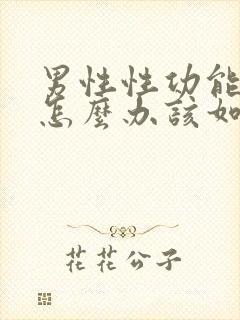 男性性功能
怎麼办該如
花花公子